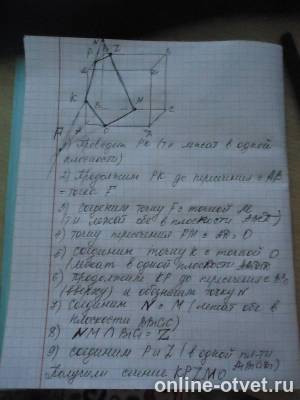 1) Проведём PK (т.к лежат в одной
плоскости)
2) Продолжим PK до пересечения с AB
- точка F
3) соединим точку F с точкой M
(т.к лежат обе в плоскости
4) точку пересечения FM с AB = O
5) соединим точку K с точкой O
(лежат в одной плоскости
6) Продолжим KP до пересечения с
(вверху) и обозначим точку N
7) Соединим N и M (лежат обе в
плоскости BB1C1C)
8) NM ∩ B1C1 = Z
9) соединим P и Z (в одной пл-ти
Получили сечение KPZMO
online-otvet.ru